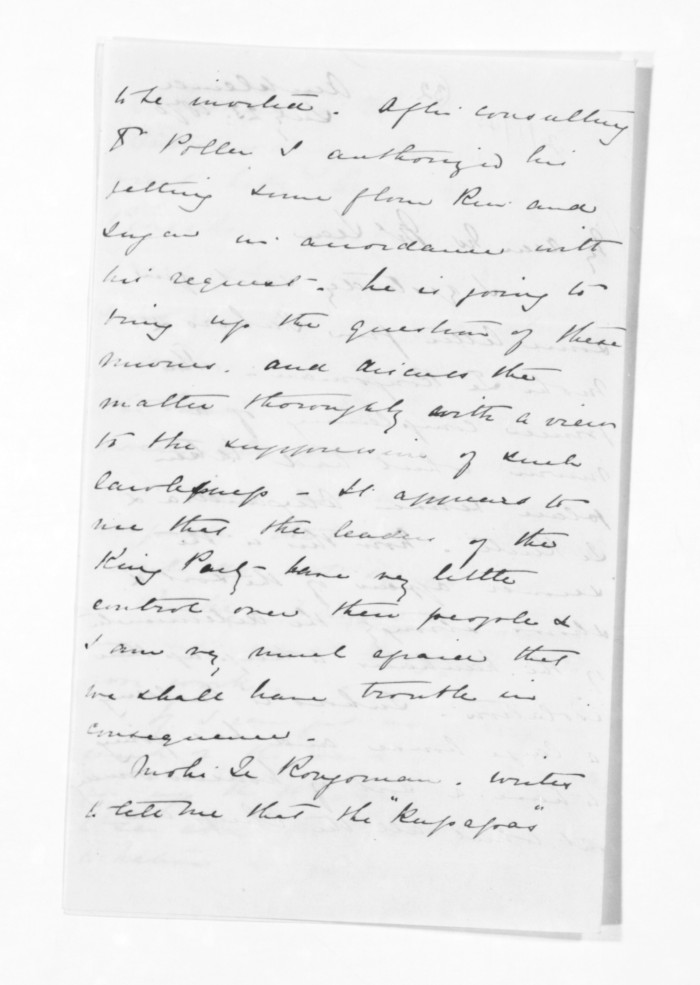 to be invited. After consulting
Dr Pollen I authorized his
getting some flour Rice and
sugar in accordance with
his request. he is going to
bring up the question of these
and discuss the
matter thoroughly with a view
to the suppression of such
It appears to
me that the leaders of the
King Party have very little
control over their people &
I am very much afraid that
we shall have trouble in
consequence.
Mohi Te Rongomau. writes
to tell me that the "Kupapas"